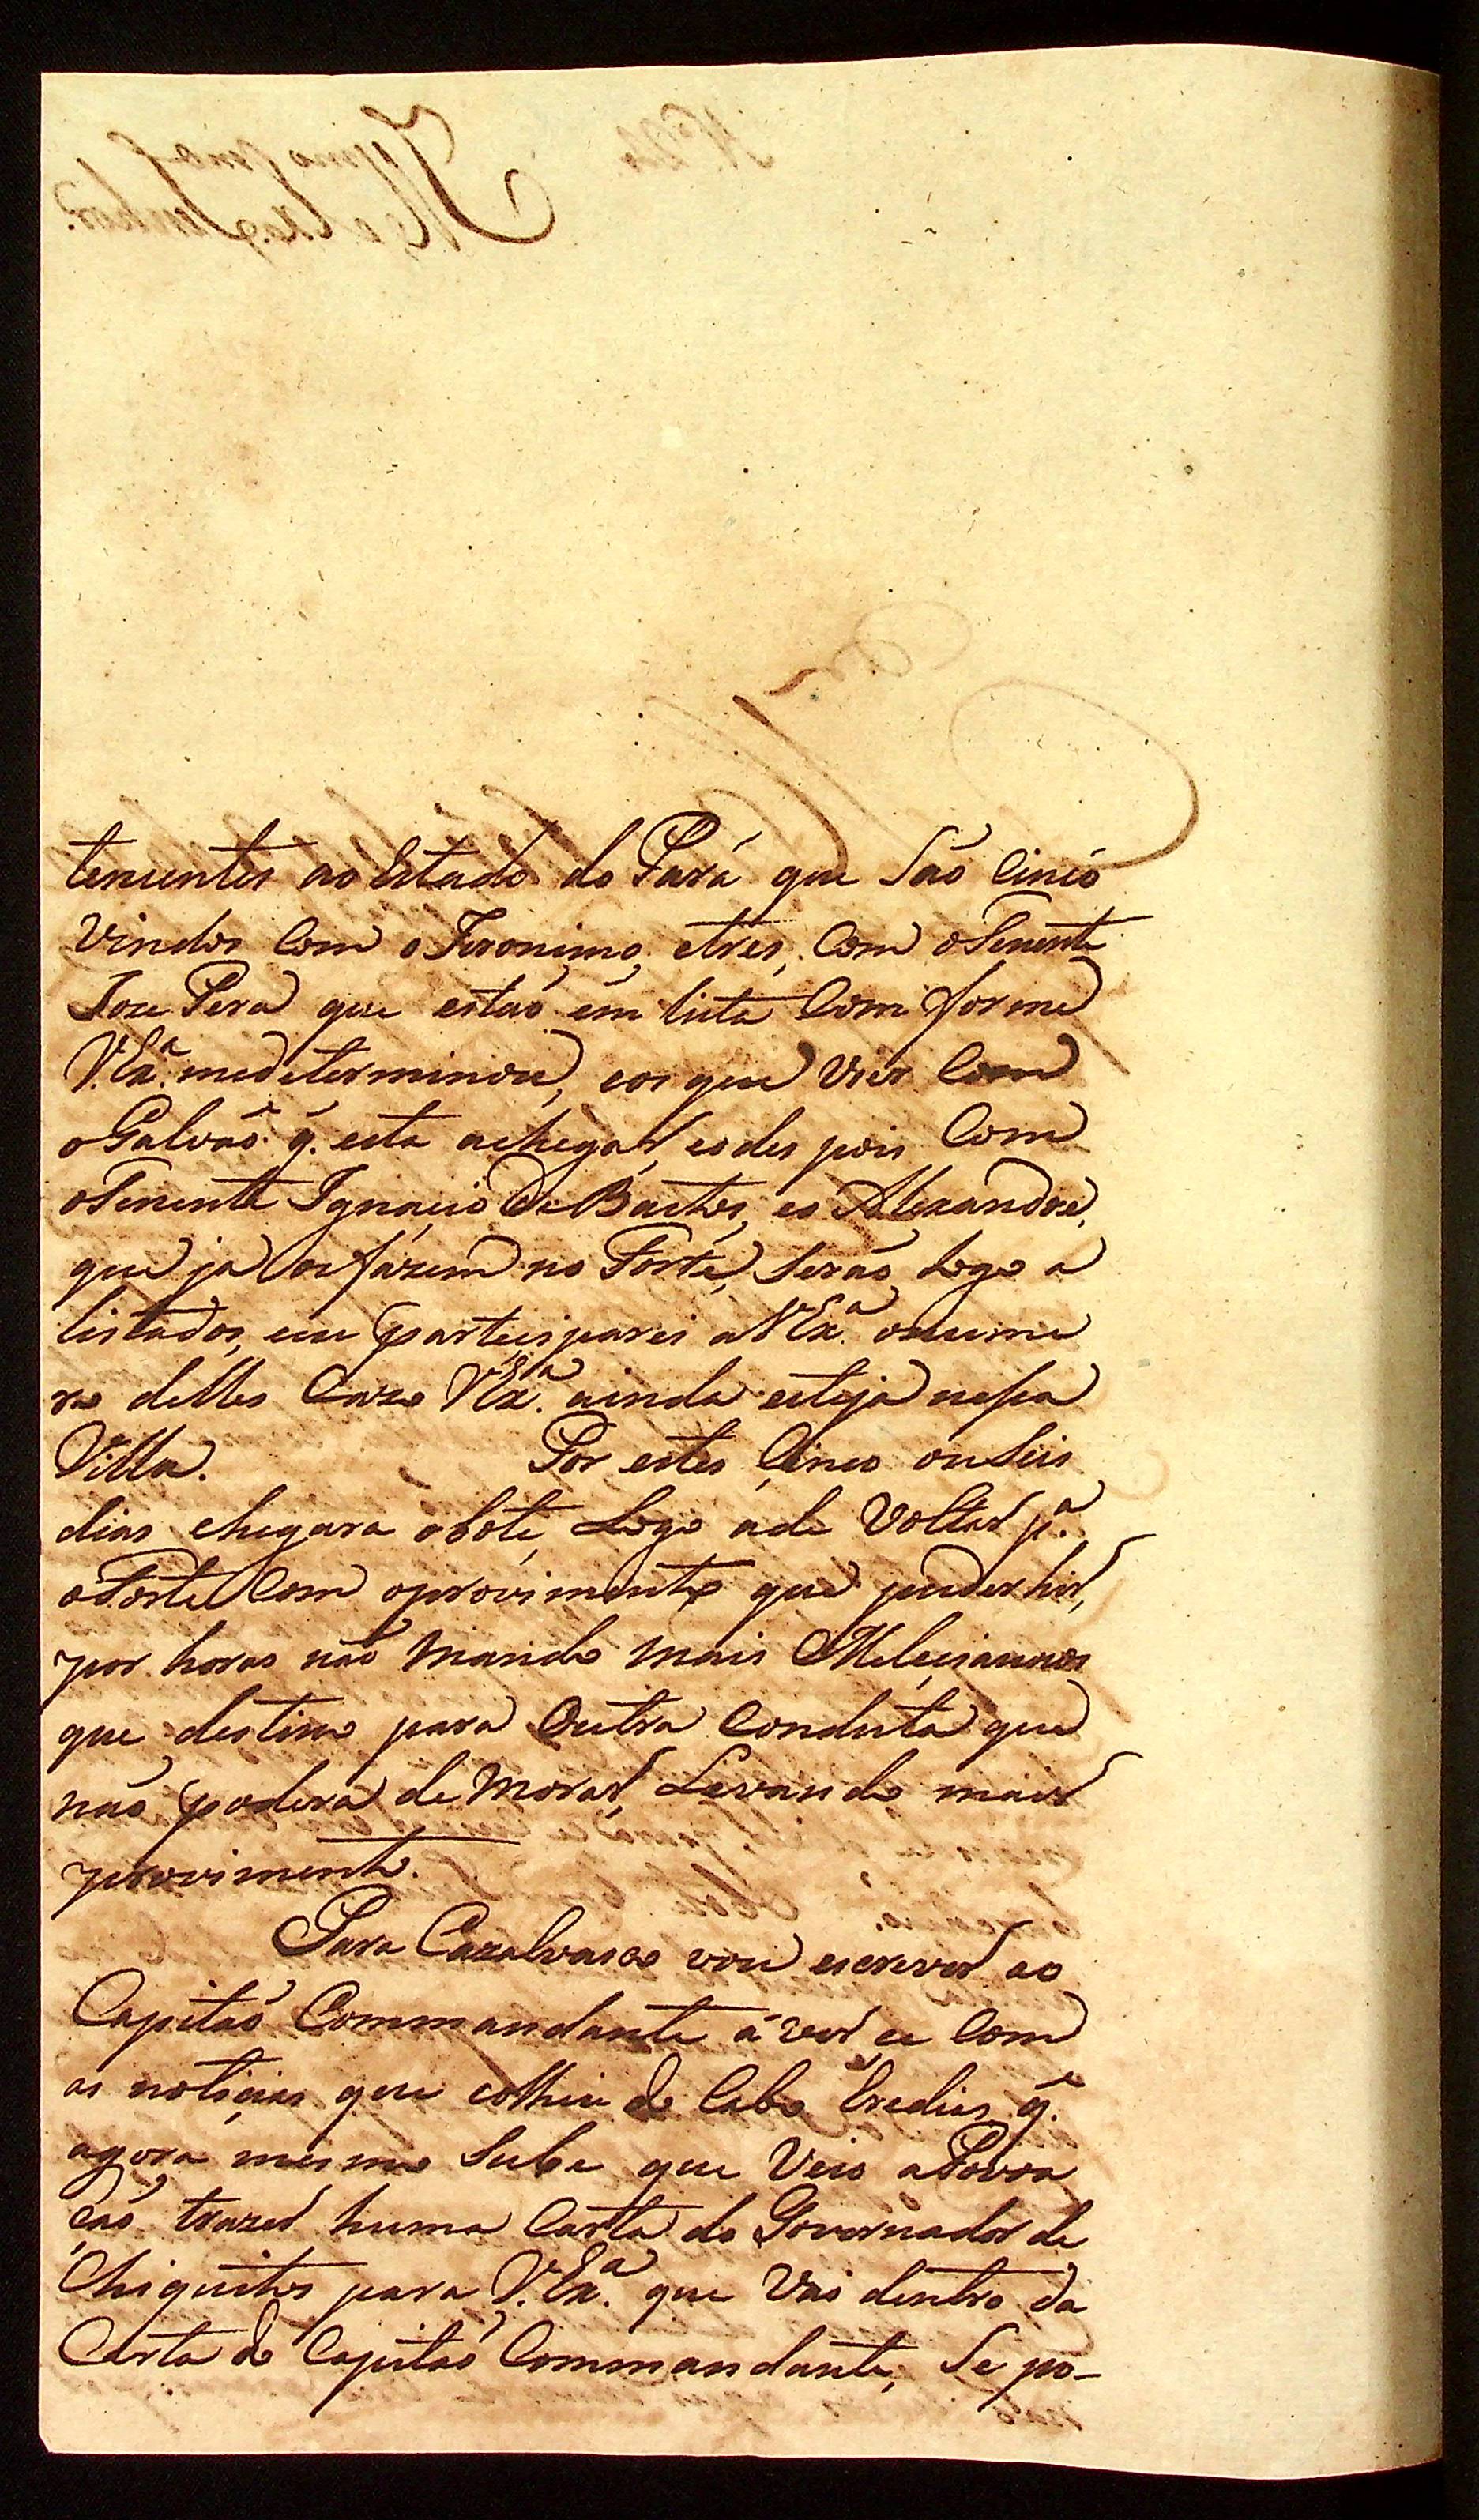 tenentes ao Estado do Pará que Saó Cinco
Vindos Com o Jeronimo, etres, Com oTenente
Joze Pera que estaó em lista Com forme
V.Exª. medeterminou, eos que Vier Com
oGalvaõ q̃. esta achegar, eodes pois Com
oTenente Ignacio de Bastos, eo Alexandre,
que ja os fazem no Forte, Seraõ Logo a
listados, eeu participarei a V.Exª. onume
ro delles Cazo V.Exª. ainda esteja nessa
Villa. Por estes Cinco ouSeis
dias chegara obote, Logo ade Voltar pª.
oForte Com oprovimento que puder hir,
por horas naõ Mando Mais Meleciannos
que destino para Outra Conduta que
naõ podera de Morar, Levando mais
provimento.
Para Cazalvasco vou escrever ao
Capitaõ Commandante á ver se Com
as noticias que colheu do Cabo Eredias q̃.
agora mesmo Sube que Veio aPovoa
çaõ trazer huma Carta do Governador de
Chiquitos para V.Exª. que Vai dentro da
Carta do Capitaõ Commandante, Se po-